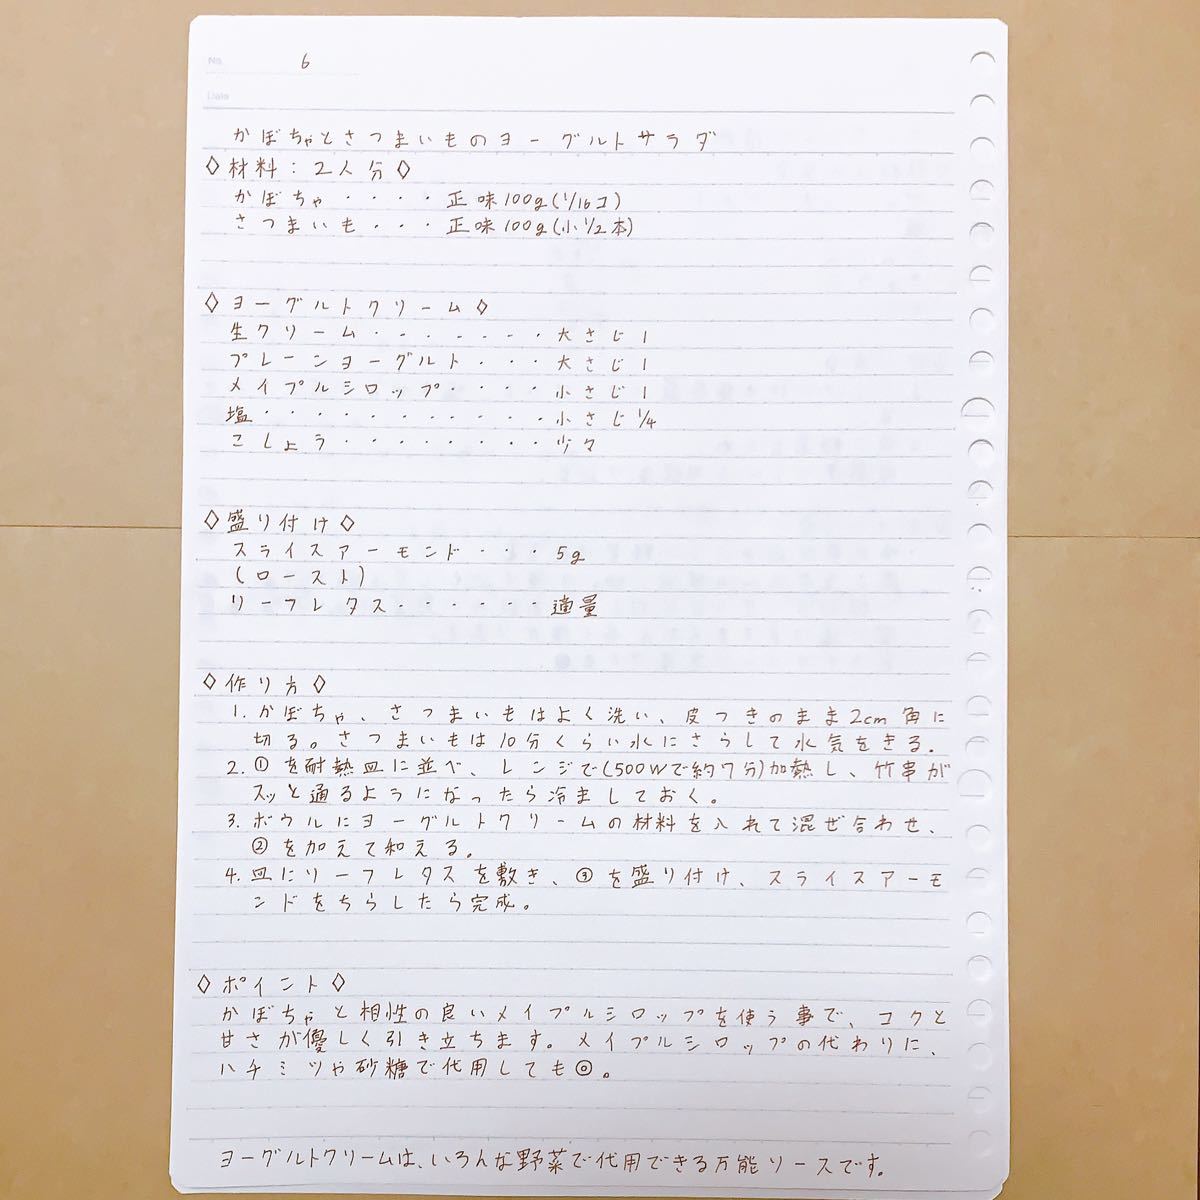 No. 6
Date
かぼちゃとさつまいものヨーグルトサラダ
◇材料:2人分◇
かぼちゃ・・・・正味100g(1/16コ)
さつまいも・・・正味100g(小1/2本)
◇ヨーグルトクリーム◇
生クリーム・・・・・・・大さじ1
プレーンヨーグルト・・・大さじ1
メイプルシロップ・・・・小さじ1
塩・・・・・・・・・・・小さじ1/4
こしょう・・・・・・・・少々
◇盛り付け◇
スライスアーモンド・・・5g
(ロースト)
リーフレタス・・・・・・適量
◇作り方◇
1. かぼちゃ、さつまいもはよく洗い、皮つきのまま2cm角に
切る。さつまいもは10分くらい水にさらして水気をきる。
2. ①を耐熱皿に並べ、レンジで(500Wで約7分)加熱し、竹串が
スッと通るようになったら冷ましておく。
3. ボウルにヨーグルトクリームの材料を入れて混ぜ合わせ、
②を加えて和える。
4. 皿にリーフレタスを敷き、③を盛り付け、スライスアーモ
ンドをちらしたら完成。
◇ポイント◇
かぼちゃと相性の良いメイプルシロップを使う事で、コクと
甘さが優しく引き立ちます。メイプルシロップの代わりに、
ハチミツや砂糖で代用しても◎。
ヨーグルトクリームは、いろんな野菜で代用できる万能ソースです。